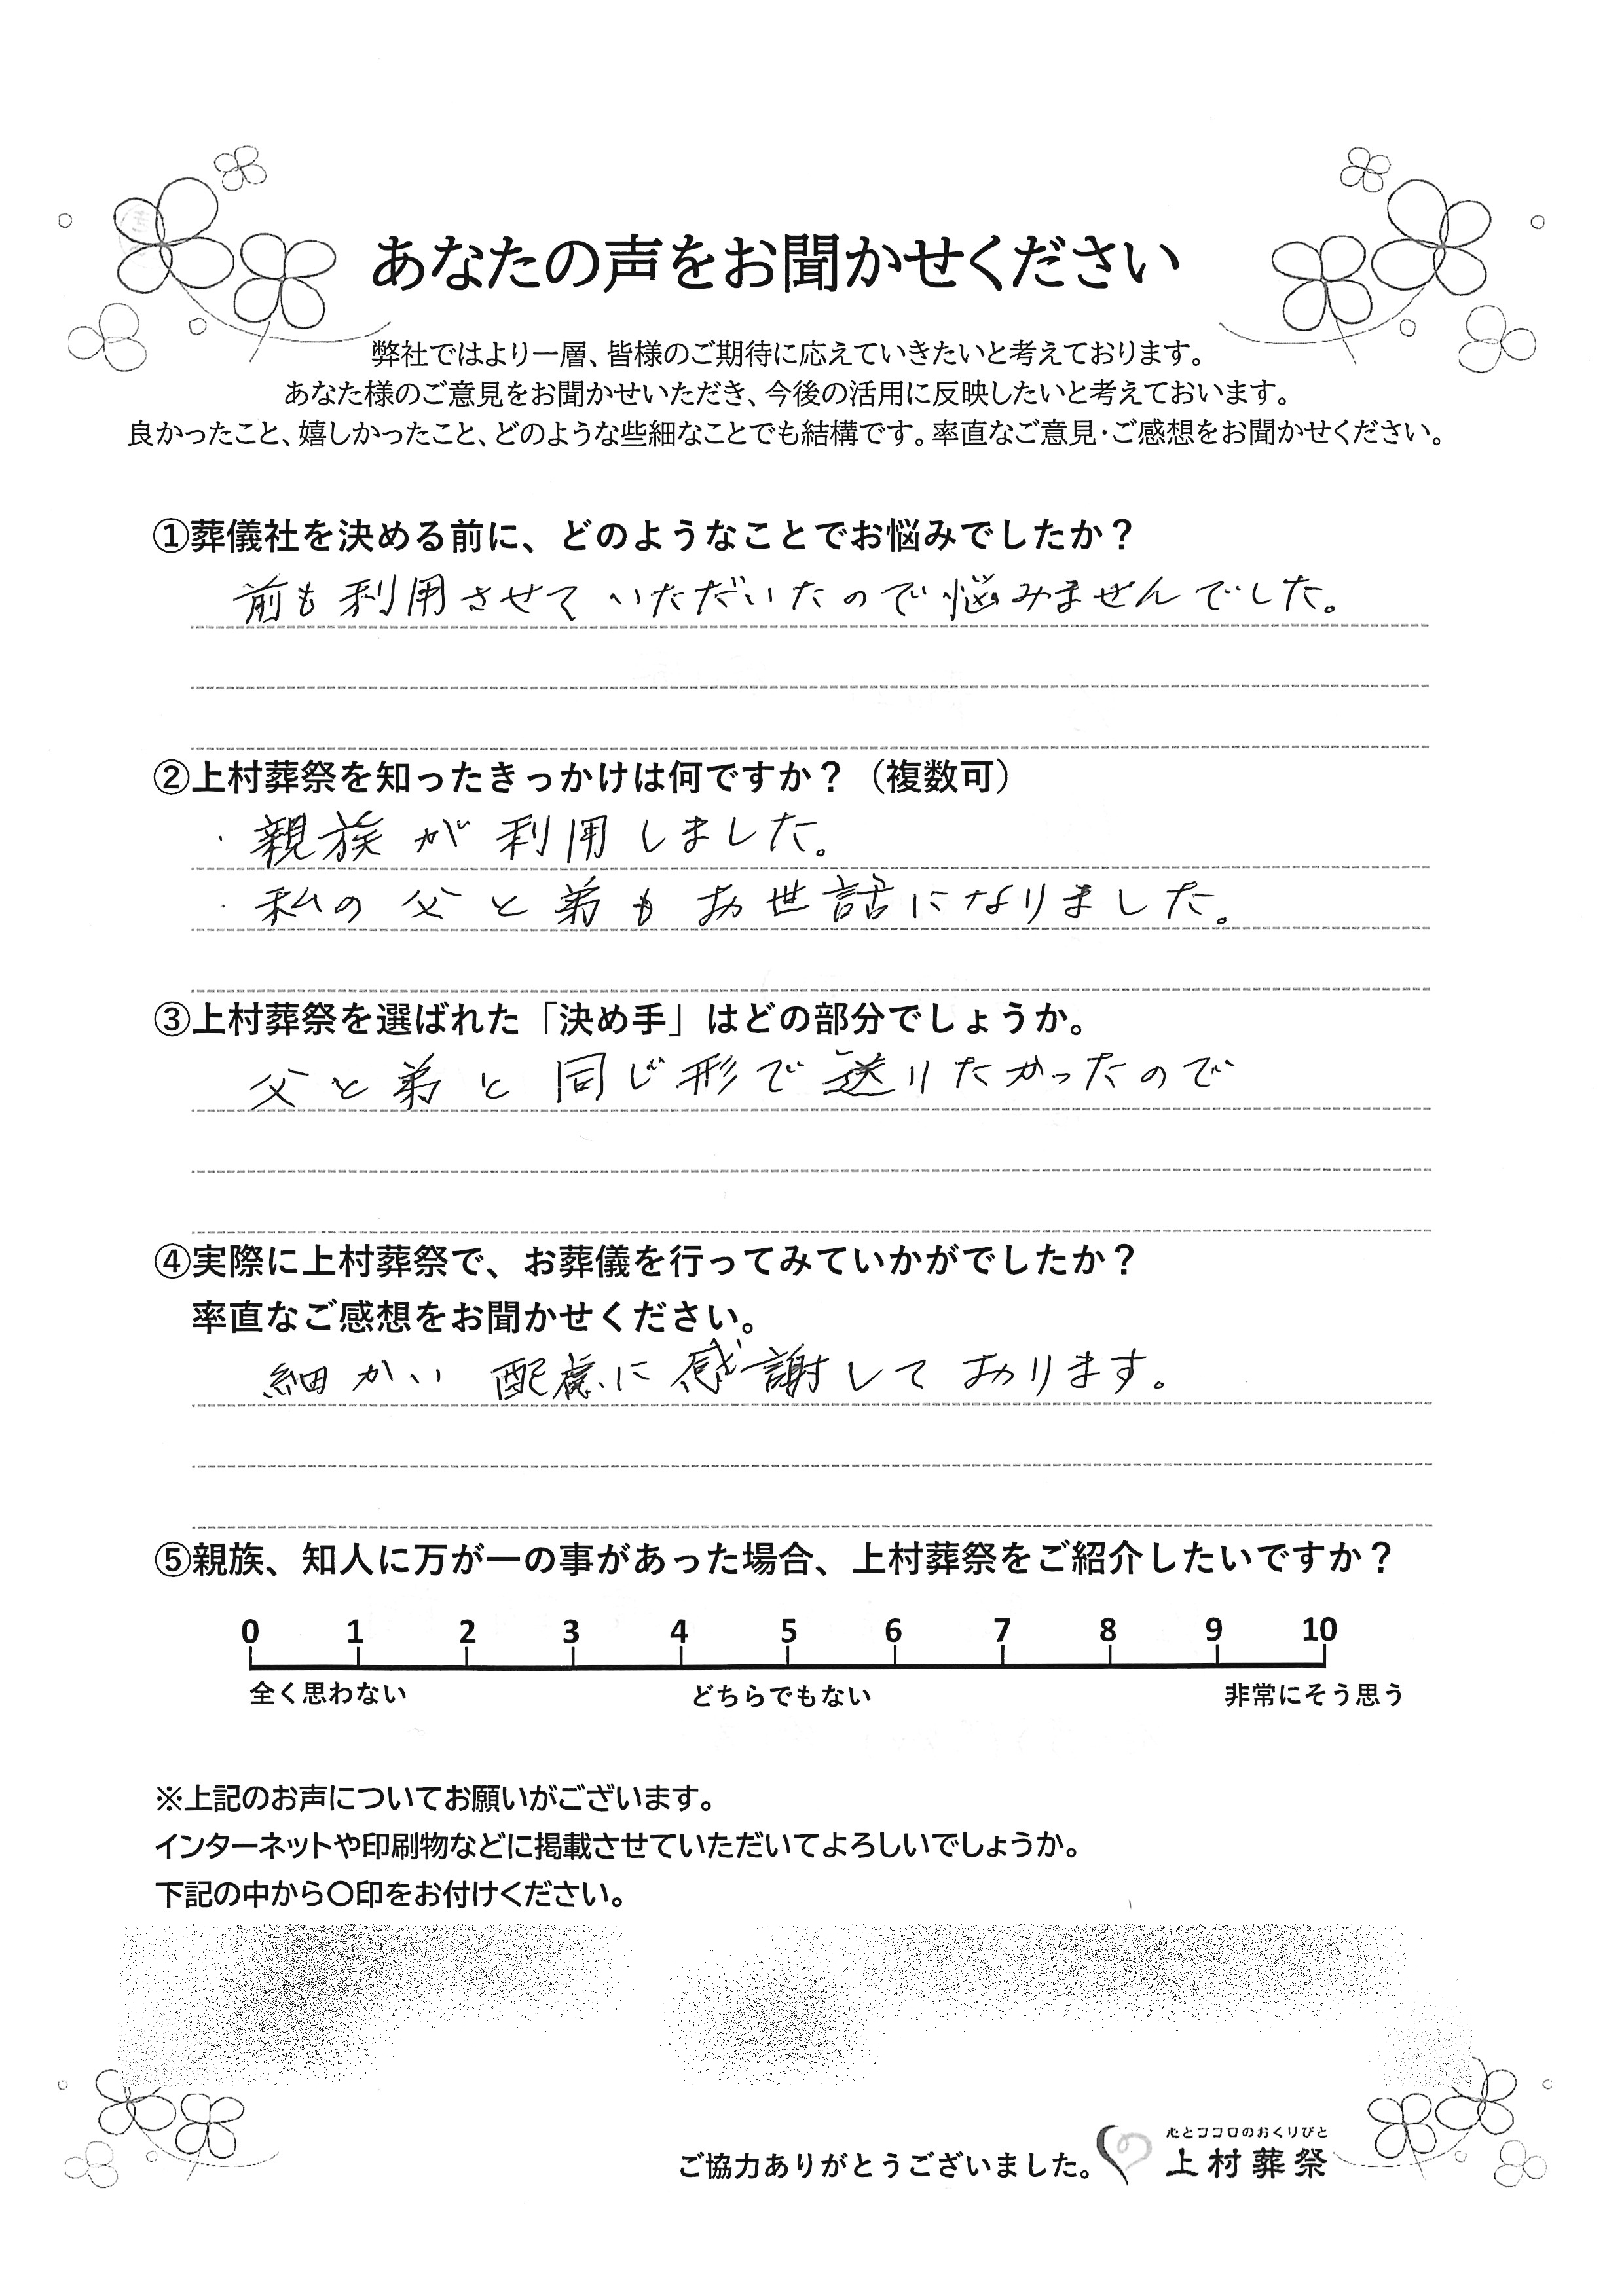 あなたの声をお聞かせください
弊社ではより一層、皆様のご期待に応えていきたいと考えております。
あなた様のご意見をお聞かせいただき、今後の活用に反映したいと考えておいます。
良かったこと、嬉しかったこと、どのような些細なことでも結構です。率直なご意見・ご感想をお聞かせください。
①葬儀社を決める前に、どのようなことでお悩みでしたか？
前も利用させていただいたので悩みませんでした。
②上村葬祭を知ったきっかけは何ですか？（複数可）
・親族が利用しました。
・私の父と弟もお世話になりました。
③上村葬祭を選ばれた「決め手」はどの部分でしょうか。
父と弟と同じ形で送りたかったので
④実際に上村葬祭で、お葬儀を行ってみていかがでしたか？
率直なご感想をお聞かせください。
細かい配慮に感謝しております。
⑤親族、知人に万が一の事があった場合、上村葬祭をご紹介したいですか？
0 1 2 3 4 5 6 7 8 9 10
全く思わない どちらでもない 非常にそう思う
※上記のお声についてお願いがございます。
インターネットや印刷物などに掲載させていただいてよろしいでしょうか。
下記の中から〇印をお付けください。
心とココロのおくりびと
ご協力ありがとうございました。 上村葬祭